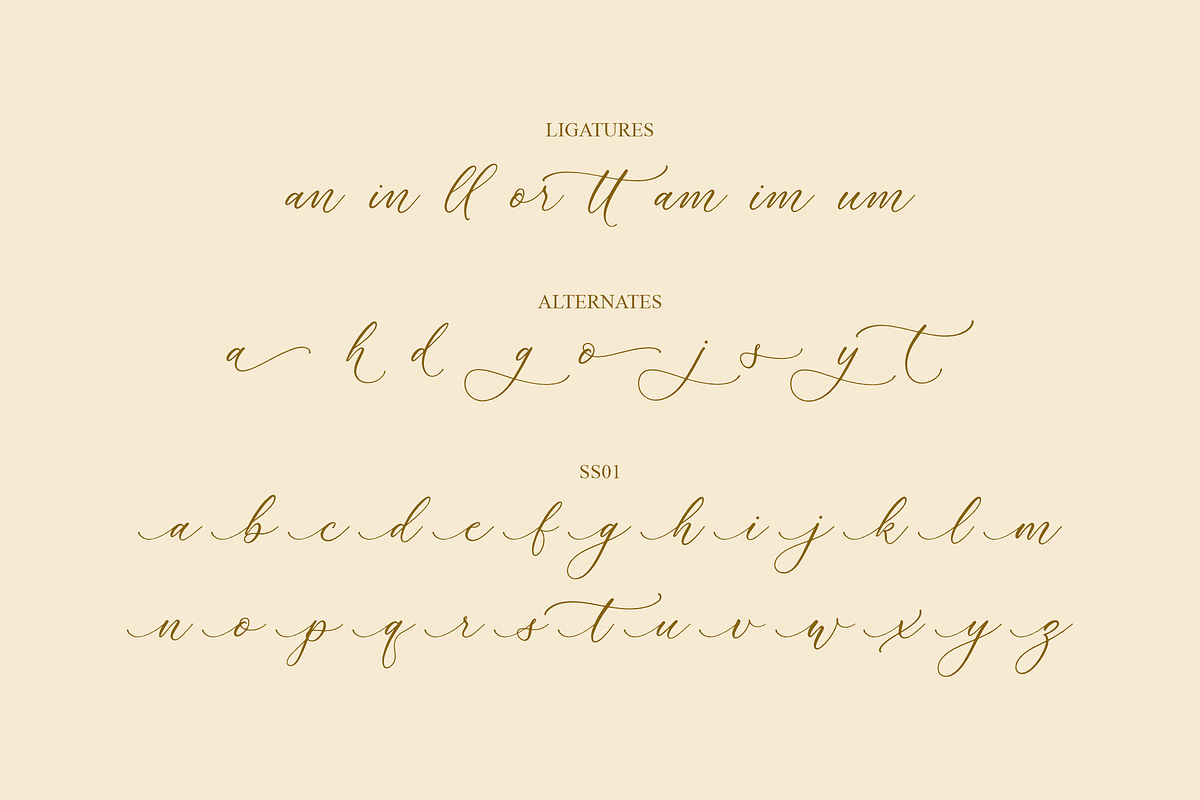 LIGATURES
an in ll or tt am im um
ALTERNATES
a h d g o j s y t
SS01
a b c d e f g h i j k l m
n o p q r s t u v w x y z